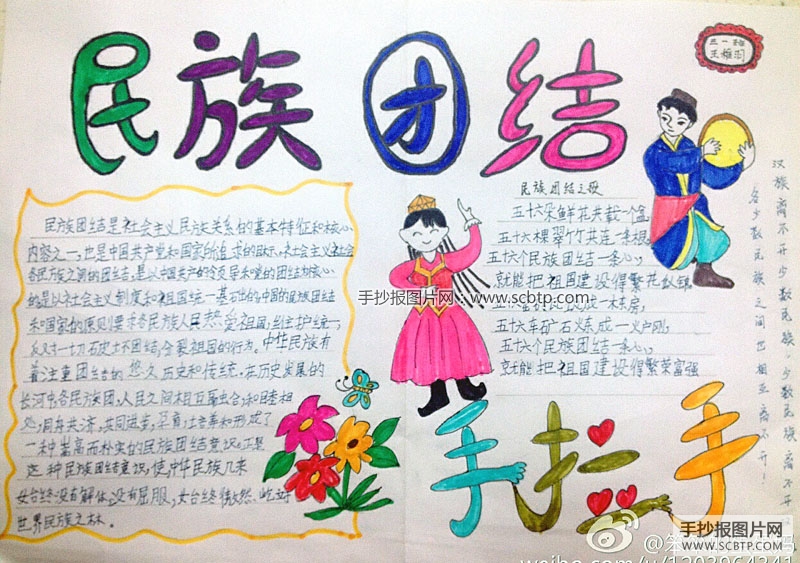 民族团结
三一班
王雅羽
民族团结是社会主义民族关系的基本特征和核心
内容之一,也是中国共产党和国家所追求的目标。社会主义社会
各民族之间的团结,是以中国共产党领导和党的团结为核心
的,是以社会主义制度和祖国统一基石的中国的民族团结
和国家的原则要求各民族人民热爱祖国,维护统一,
反对一切不团结,分裂祖国的行为。中华民族有
着注重团结的悠久历史和传统,在历史发展的
长河中各民族人民之间相互融合和睦相
处,同舟共济,共同进步,孕育培养和形成了
一种崇高而朴实的民族团结意识,正是
这种民族团结意识,使中华民族几来
始终没有解体,没有屈服,始终傲然屹立
世界民族之林。
民族团结之歌
五十六朵鲜花共栽一个盆,
五十六棵翠竹共连一条根,
五十六个民族团结一条心,
就能把祖国建设得繁花似锦。
一栋房,
五十六车矿石炼成一义户刚,
五十六个民族团结一条心,
就能把祖国建设得繁荣富强
汉族离不开少数民族,少数民族离不开
各少数民族之间也相互离不开!
手拉手
手抄报图片网:www.scbtp.com
手抄报图片网
WWW.SCBTP.COM
weibo.com/u/1203964341